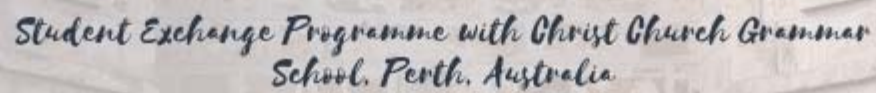 Student Exchange Programme with Christ Church Grammar
School, Perth, Australia